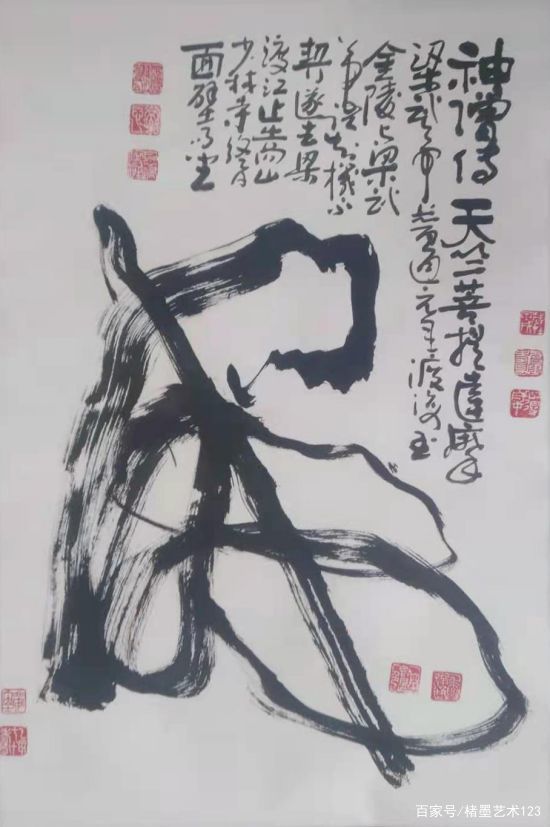 神僧传天竺菩提達摩
梁武帝普通元年渡海至
金陵与梁武
帝語知機不
契遂去梁
渡江止嵩山
少林寺终日
面壁而坐
百家号/楮墨艺术123